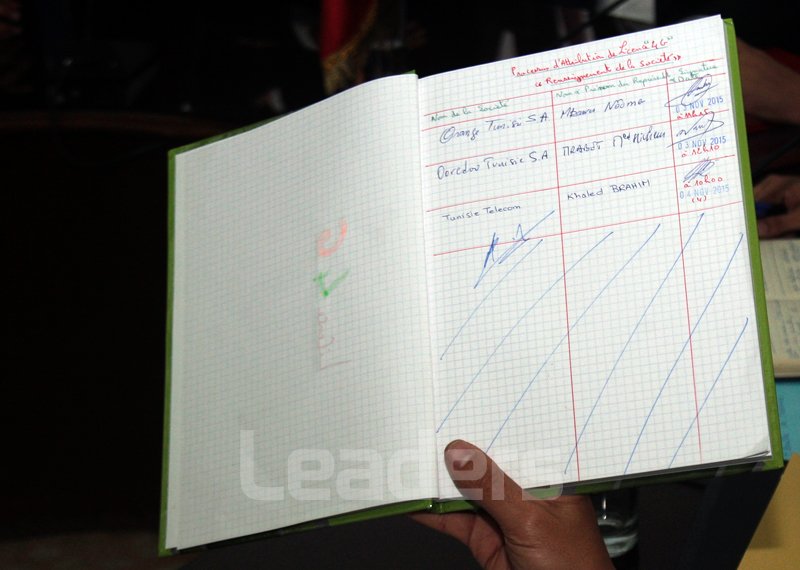 Processus d'Attribution de Licence "4G"
« Renseignement de la Société »
Nom de la Société
Nom & Prénom du Représentant
Signature & Date
Orange Tunisie S.A
Néema
03 NOV 2015
à 11h15
Ooredoo Tunisie S.A
MRABET Med Hichem
03 NOV 2015
à 12h10
Tunisie Telecom
Khaled BRAHIM
à 10h00
04 NOV 2015
(4)
Leaders